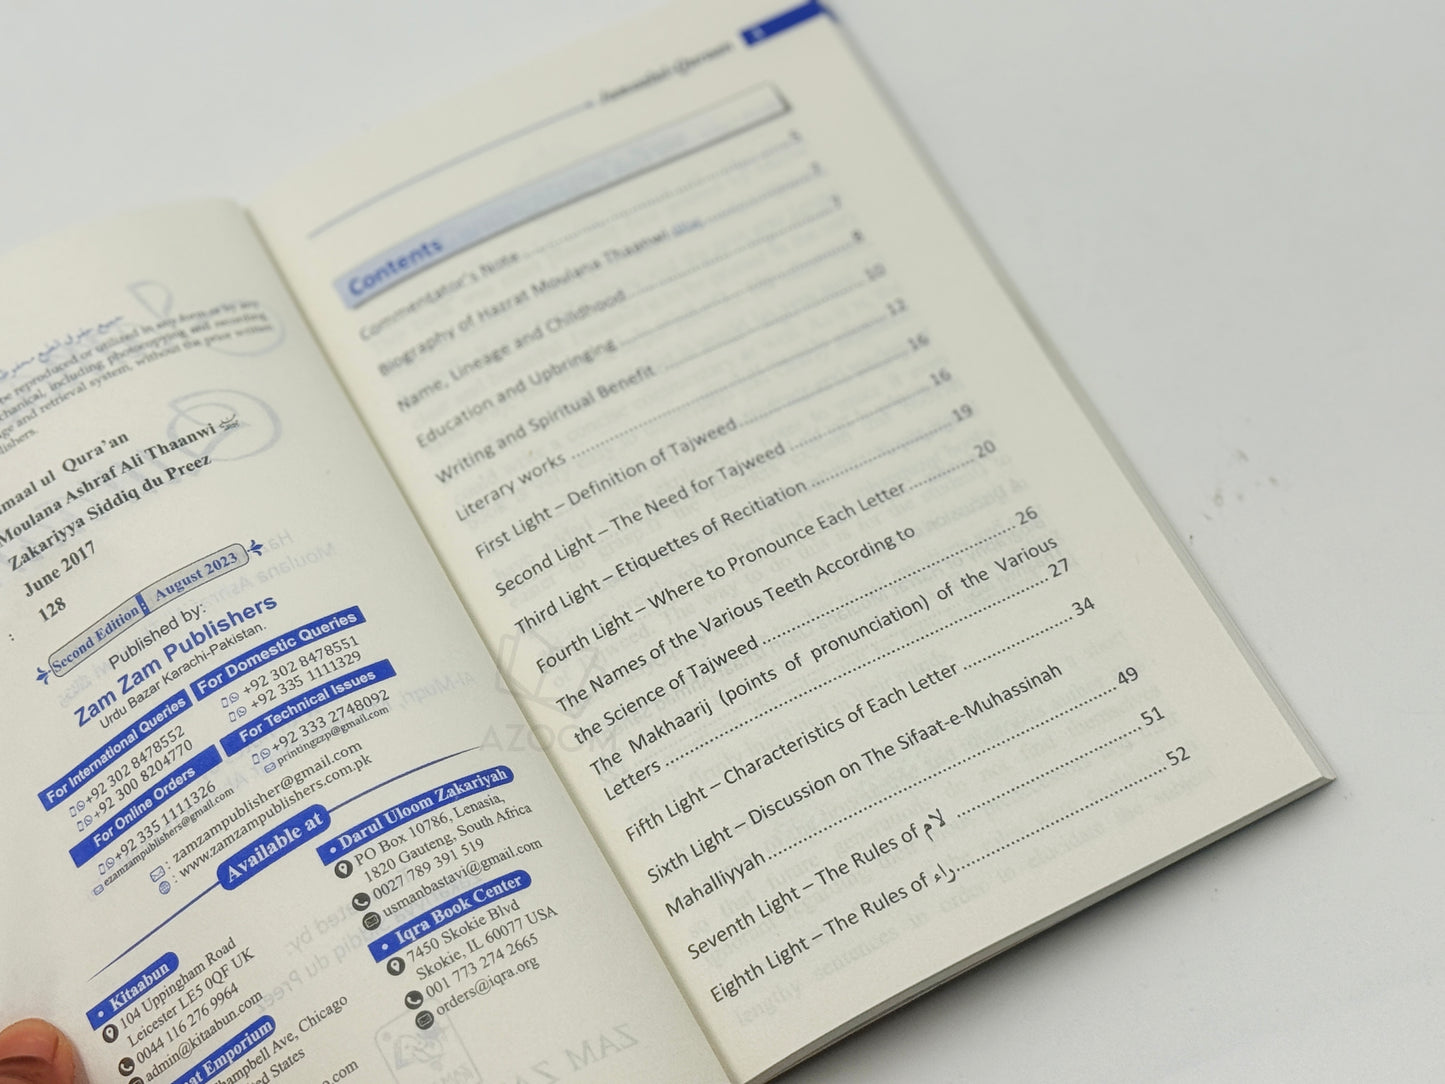 be reproduced or utilized in any form or by any
including photocopying and recording
and retrieval system, without the prior written
maal ul Qura'an
Moulana Ashraf Ali Thaanwi
Zakariyya Siddiq du Preez
June 2017
: 128
Second Edition August 2023
Published by:
Zam Zam Publishers
Urdu Bazar Karachi-Pakistan.
For International Queries
+92 302 8478552
+92 300 8204770
For Domestic Queries
+92 302 8478551
+92 335 1111329
For Online Orders
+92 335 111326
ezamzampublishers@gmail.com
For Technical Issues
+92 333 2748092
printingzzp@gmail.com
: zamzampublisher@gmail.com
: www.zamzampublishers.com.pk
Available at
• Darul Uloom Zakariyah
PO Box 10786, Lenasia,
1820 Gauteng, South Africa
0027 789 391 519
usmanbastavi@gmail.com
• Iqra Book Center
7450 Skokie Blvd
Skokie, IL 60077 USA
001 773 274 2665
orders@iqra.org
• Kitaabun
104 Uppingham Road
Leicester LE5 0QF UK
0044 116 276 9964
admin@kitaabun.com
Emporium
Ave, Chicago
States
Contents
Commentator's Note
Biography of Hazrat Moulana Thaanwi
Name, Lineage and Childhood ... 7
Education and Upbringing ... 8
Writing and Spiritual Benefit ... 10
Literary works ... 12
First Light – Definition of Tajweed ... 16
Second Light – The Need for Tajweed ... 16
Third Light – Etiquettes of Recitiation ... 19
Fourth Light – Where to Pronounce Each Letter ... 20
The Names of the Various Teeth According to
the Science of Tajweed ... 26
The Makhaarij (points of pronunciation) of the Various
Letters ... 27
Fifth Light – Characteristics of Each Letter ... 34
Sixth Light – Discussion on The Sifaat-e-Muhassinah
Mahalliyyah ... 49
Seventh Light – The Rules of لام ... 51
Eighth Light – The Rules of راء ... 52
AZOOM